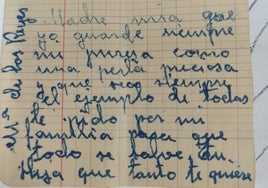 Madre mía que
yo guarde siempre
mi pureza como
una perla preciosa
y que sea siempre
el ejemplo de todas
te pido por mi
familia para que
todo se salve, tu
Hija que tanto te quiere
de los Reyes